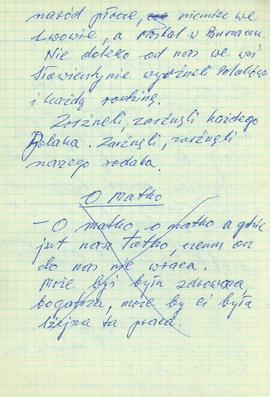 naród płacze, niemiec we
Lwowie, a Moskal w
Nie daleko od nas we wsi
wyrżneli Polaków
i każdą rodzinę.
Zarżneli, zarżnęli każdego
Polaka. Zarżnęli, zarżnęli
naszego rodaka.
O matko
- O matko, o matko a gdzie
jest nasz Tatko, czemu on
do nas nie wraca.
Może byś była zdrowsza,
bogatsza, może by ci była
lżejsza ta praca.